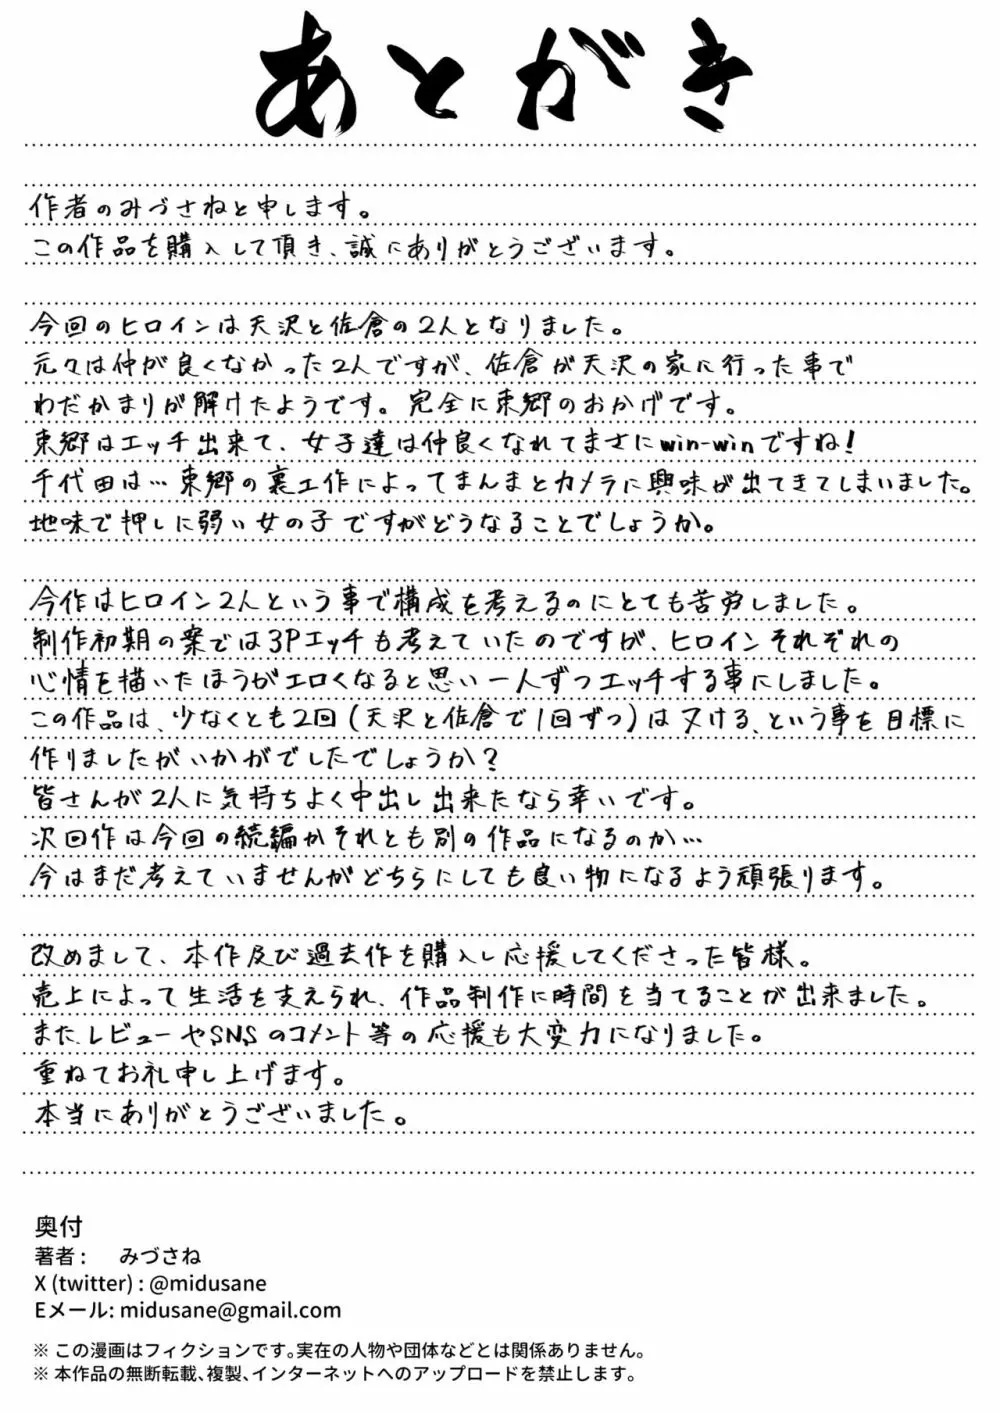 あとがき
作者のみづさねと申します。
この作品を購入して頂き、誠にありがとうございます。
今回のヒロインは天沢と佐倉の2人となりました。
元々は仲が良くなかった2人ですが、佐倉が天沢の家に行った事で
わだかまりが解けたようです。完全に東郷のおかげです。
東郷はエッチ出来て、女子達は仲良くなれてまさにwin-winですね!
千代田は…東郷の裏工作によってまんまとカメラに興味が出てきてしまいました。
地味で押しに弱い女の子ですがどうなることでしょうか。
今作はヒロイン2人という事で構成を考えるのにとても苦労しました。
制作初期の案では3Pエッチも考えていたのですが、ヒロインそれぞれの
心情を描いたほうがエロくなると思い一人ずつエッチする事にしました。
この作品は、少なくとも2回(天沢と佐倉で1回ずつ)はヌける、という事を目標に
作りましたがいかがでしたでしょうか?
皆さんが2人に気持ちよく中出し出来たなら幸いです。
次回作は今回の続編かそれとも別の作品になるのか…
今はまだ考えていませんがどちらにしても良い物になるよう頑張ります。
改めまして、本作及び過去作を購入し応援してくださった皆様。
売上によって生活を支えられ、作品制作に時間を当てることが出来ました。
また、レビューやSNSのコメント等の応援も大変力になりました。
重ねてお礼申し上げます。
本当にありがとうございました。
奥付
著者: みづさね
X (twitter) : @midusane
Eメール: midusane@gmail.com
※ この漫画はフィクションです。実在の人物や団体などとは関係ありません。
※ 本作品の無断転載、複製、インターネットへのアップロードを禁止します。